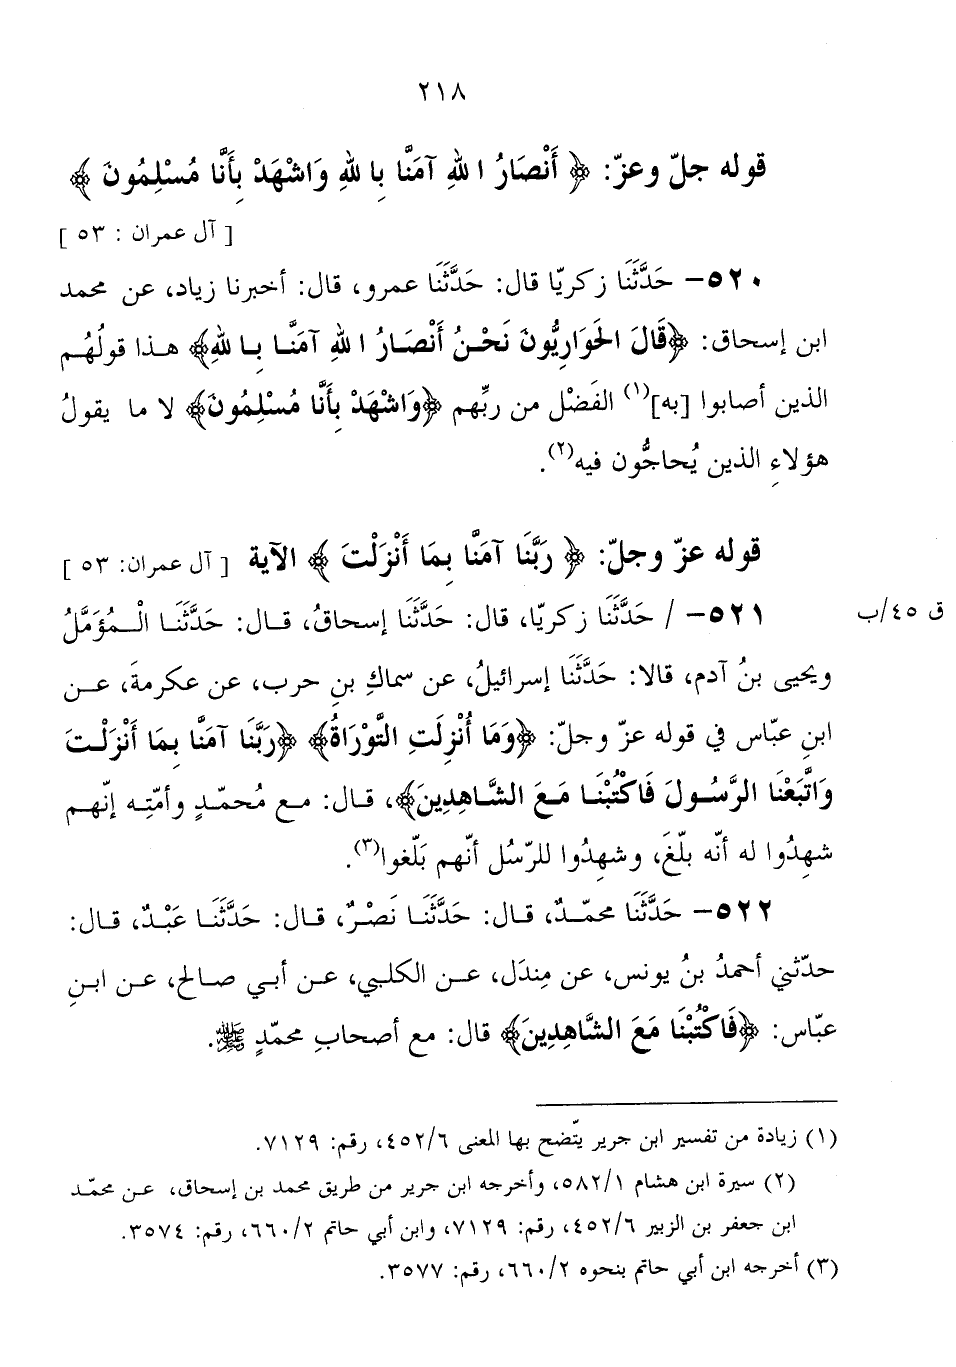 ٢١٨
قوله جلّ وعزّ: ﴿ أَنْصَارُ اللهِ آمَنَّا بِاللهِ وَاشْهَدْ بِأَنَّا مُسْلِمُونَ ﴾
[ آل عمران : ٥٣ ]
٥٢٠- حَدَّثَنَا زكريّا قال: حَدَّثَنَا عمرو، قال: أخبرنا زياد، عن محمد
ابن إسحاق: ﴿قَالَ الحَوَارِيُّونَ نَحْنُ أَنْصَارُ اللهِ آمَنَّا بِاللهِ﴾ هذا قولُهُم
الذين أصابوا [به](١) الفَضْل من ربِّهم ﴿وَاشْهَدْ بِأَنَّا مُسْلِمُونَ﴾ لا ما يقولُ
هؤلاءِ الذين يُحاجُّون فيه(٢).
قوله عزّ وجلّ: ﴿ رَبَّنَا آمَنَّا بِمَا أَنْزَلْتَ ﴾ الآية [ آل عمران: ٥٣ ]
٥٢١- / حَدَّثَنَا زكريّا، قال: حَدَّثَنَا إسحاقُ، قال: حَدَّثَنَا الْمُؤَمَّلُ
ق ٤٥/ب
ويحيى بنُ آدم، قالا: حَدَّثَنَا إسرائيلُ، عن سماكِ بنِ حرب، عن عكرمةَ، عن
ابنِ عبّاس في قوله عزّ وجلّ: ﴿وَمَا أُنْزِلَتِ التَّوْرَاةُ﴾ ﴿رَبَّنَا آمَنَّا بِمَا أَنْزَلْتَ
وَاتَّبَعْنَا الرَّسُولَ فَاكْتُبْنَا مَعَ الشَّاهِدِينَ﴾، قال: مع مُحمّدٍ وأمّتِه إنّهم
شهِدُوا له أنّه بلّغَ، وشهِدُوا للرّسُل أنّهم بَلّغوا(٣).
٥٢٢- حَدَّثَنَا محمّدٌ، قال: حَدَّثَنَا نَصْرٌ، قال: حَدَّثَنَا عَبْدٌ، قال:
حدّثني أحمدُ بنُ يونس، عن مِندَل، عن الكلبي، عن أبي صالح، عن ابنِ
عبّاس: ﴿فَاكْتُبْنَا مَعَ الشَّاهِدِينَ﴾ قال: مع أصحابِ محمّدٍ ﷺ.
(١) زيادة من تفسير ابن جرير يتّضح بها المعنى ٤٥٢/٦، رقم: ٧١٢٩.
(٢) سيرة ابن هشام ٥٨٢/١، وأخرجه ابن جرير من طريق محمد بن إسحاق، عن محمّد
ابن جعفر بن الزبير ٤٥٢/٦، رقم: ٧١٢٩، وابن أبي حاتم ٦٦٠/٢، رقم: ٣٥٧٤.
(٣) أخرجه ابن أبي حاتم بنحوه ٦٦٠/٢، رقم: ٣٥٧٧.